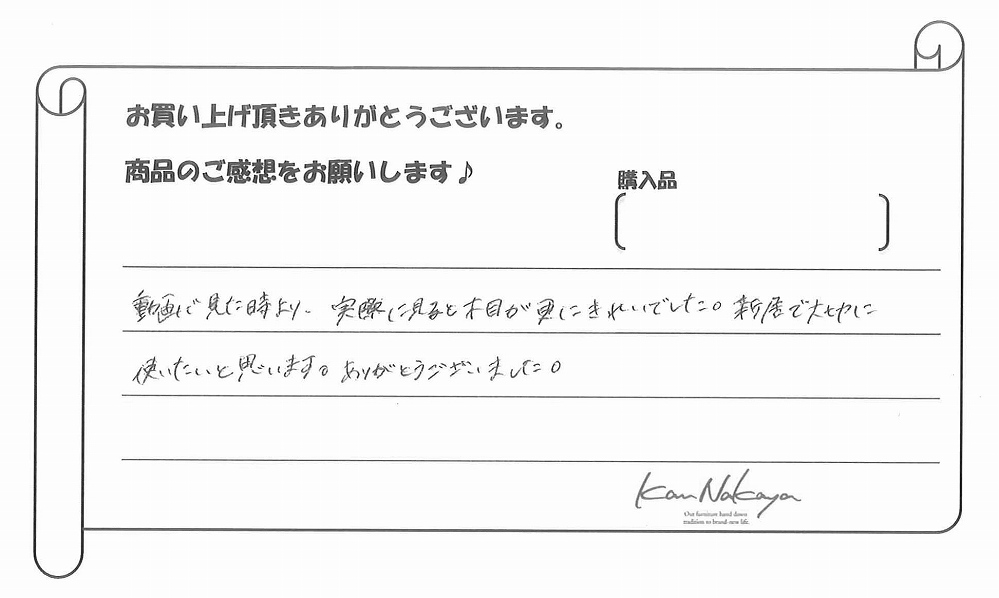 お買い上げ頂きありがとうございます。
商品のご感想をお願いします♪
購入品
動画で見た時より、実際に見ると木目が更にきれいでした。新居で大切に
使いたいと思います。ありがとうございました。
Kan Nakaya
Our furniture hand down
tradition to brand-new life.